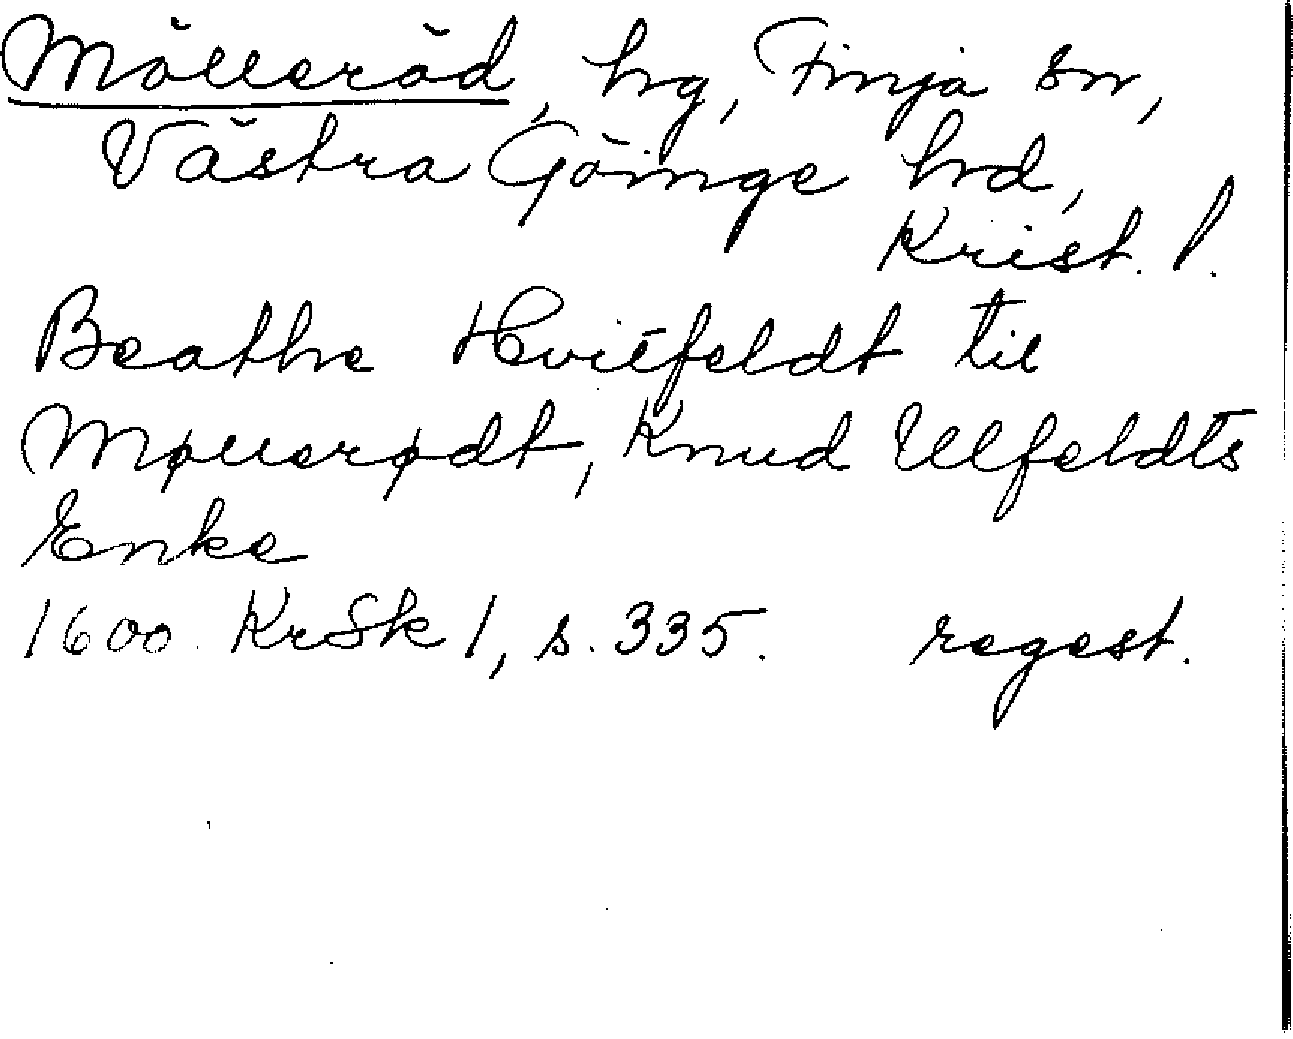 Mölleröd, hg, Finja sn,
Västra Göinge hrd,
Krist. l.
Beathe Hvitfeldt til
Møllerødt, Knud Ulfeldts
Enke
1600. KrSk 1, s. 335. regest.